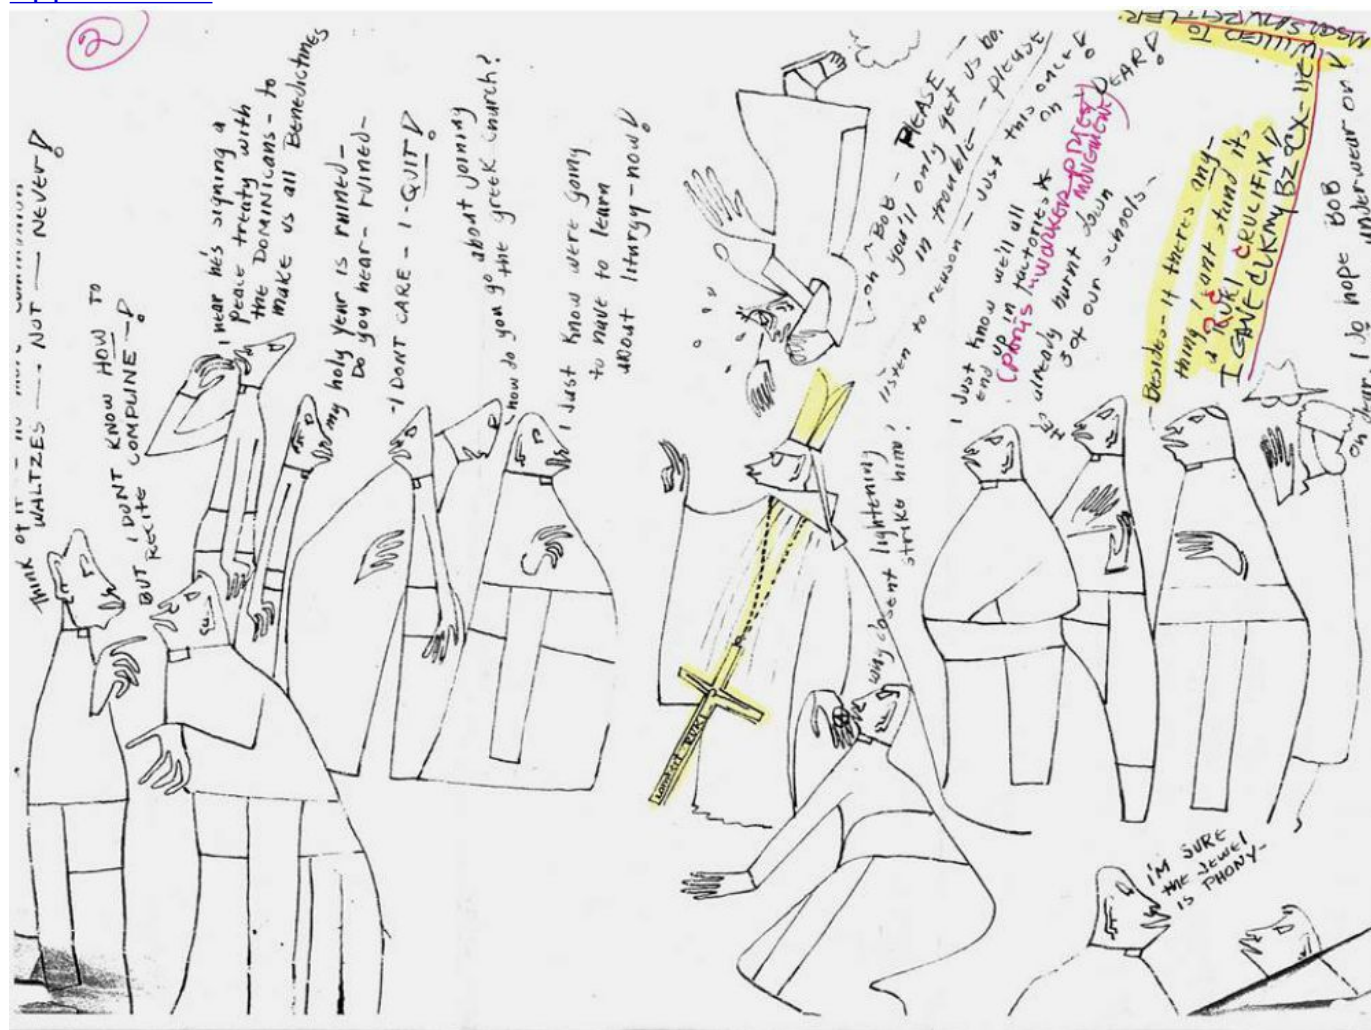 2
THINK of it — no more communion
WALTZES —. NOT — NEVER!
BUT I DONT KNOW HOW TO
RECITE COMPLINE —!
I hear he's signing a
peace treaty with
the DOMINICANS - to
make us all Benedictines
my holy year is ruined -
Do you hear - ruined -
-I DONT CARE - I - QUIT!
how do you go about joining
the greek church?
I Just Know were going
to have to learn
about liturgy - now!
- oh ~ BOB - PLEASE -
you'll only get us bo.
in trouble - please
listen to reason - Just this once!
why dosent lightening
strike him?
I Just know we'll all
end up in factories*
on
DEAR!
(PARIS WORKER-PRIEST
MOVEMENT)
He's already burnt down
3 of our schools -
Besides - if theres any-
thing I cant stand it's
a RUKI CRUCIFIX!
I GAVE
my
WILLED TO
oh dear. I do hope BOB
under-wear on!
RUKI
I'M SURE
the Jewel
is PHONY -